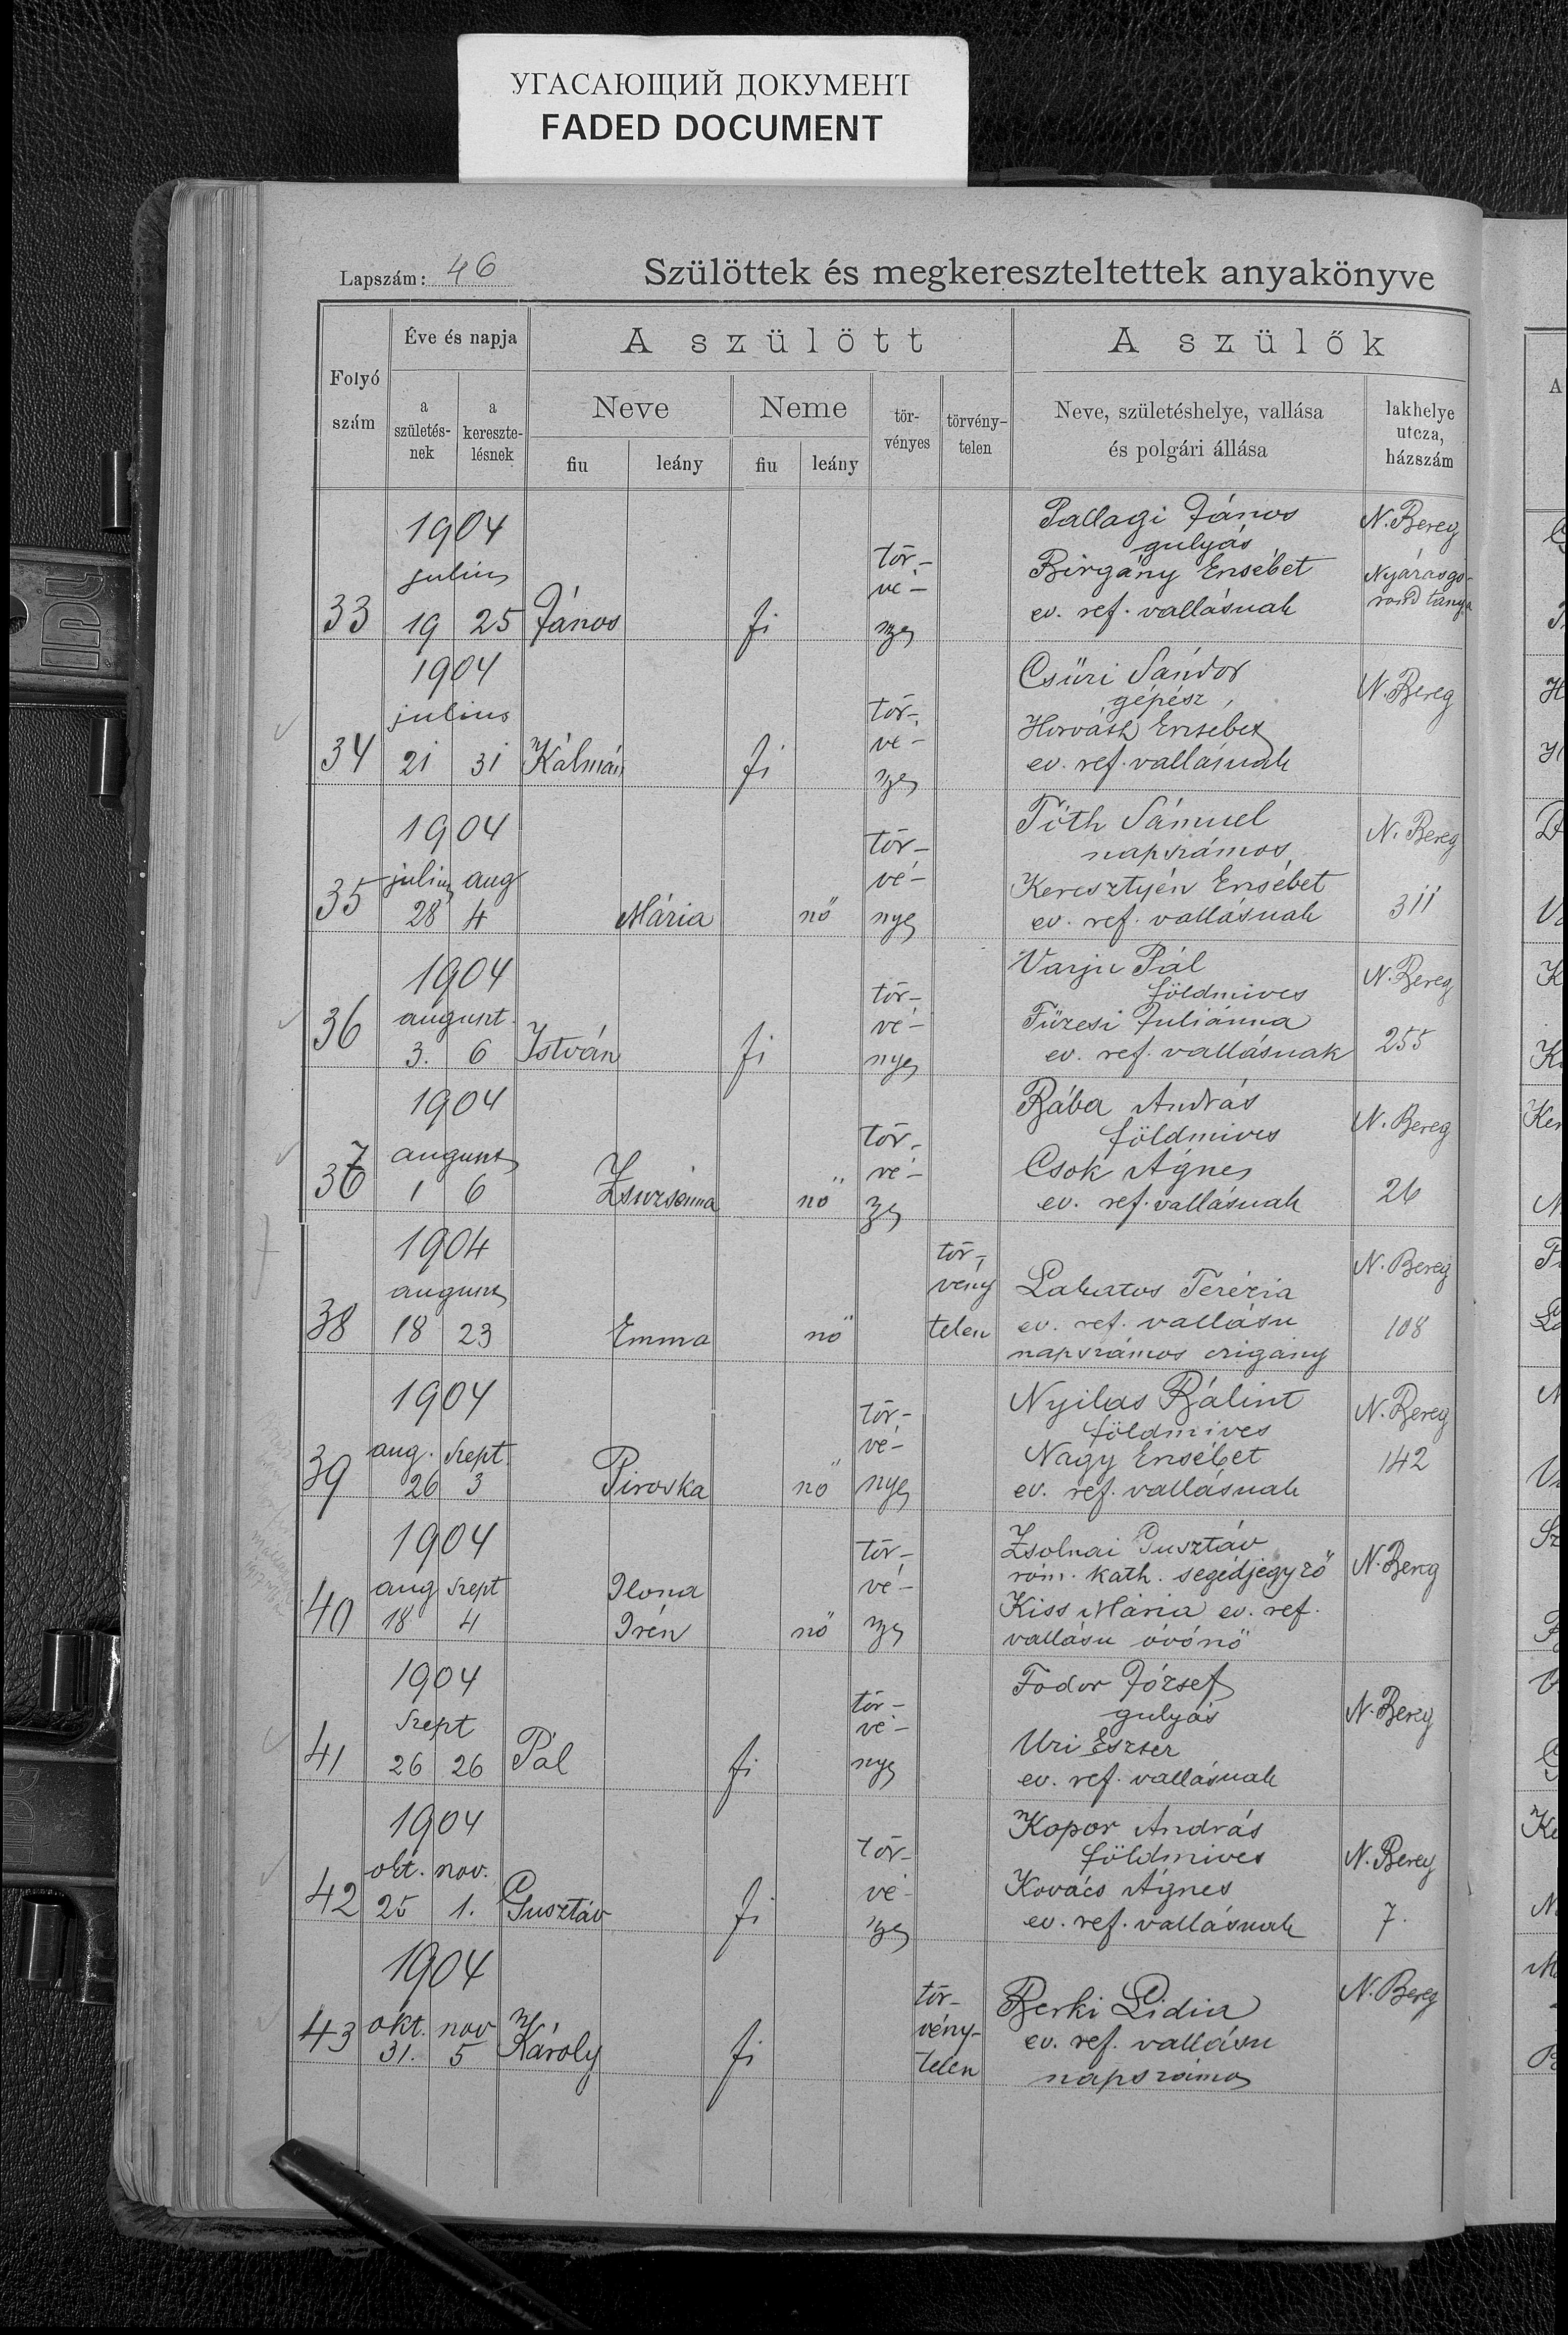 УГАСАЮЩИЙ ДОКУМЕНТ
FADED DOCUMENT
Lapszám: 46
Szülöttek és megkereszteltettek anyakönyve
Folyó szám
Éve és napja
a születés-nek
a keresztelésnek
A szülött
Neve
fiu
leány
Neme
fiu
leány
tör-vényes
törvény-telen
A szülők
Neve, születéshelye, vallása
és polgári állása
lakhelye
utcza,
házszám
33
1904
julius
19 25
János
fi
tör-
vé-
nyes
Pallagi János
gulyás
Birgány Erzsébet
ev. ref. vallásuak
N. Bereg
Nyárasgo-
rond tanya
34
1904
julius
21 31
Kálmán
fi
tör-
vé-
nyes
Csüri Sándor
gépész
Horváth Erzsébet
ev. ref. vallásuak
N. Bereg
35
1904
julius aug
28 4
Mária
nő
tör-
vé-
nyes
Tóth Sámuel
napszámos
Keresztyén Erzsébet
ev. ref. vallásuak
N. Bereg
311
36
1904
august.
3. 6
István
fi
tör-
vé-
nyes
Varju Pál
földmives
Füzesi Juliánna
ev. ref. vallásuak
N. Bereg
255
37
1904
august
1 6
Zsuzsánna
nő
tör-
vé-
nyes
Bába András
földmives
Csok Ágnes
ev. ref. vallásuak
N. Bereg
26
38
1904
august
18 23
Emma
nő
tör-
vény
telen
Lakatos Terézia
ev. ref. vallásu
napszámos czigány
N. Bereg
108
39
1904
aug. szept.
26 3
Piroska
nő
tör-
vé-
nyes
Nyilas Bálint
földmives
Nagy Erzsébet
ev. ref. vallásuak
N. Bereg
142
40
1904
aug szept
18 4
Ilona
Irén
nő
tör-
vé-
nyes
Zsolnai Gusztáv
róm. kath. segédjegyző
Kiss Mária ev. ref.
vallásu óvónő
N. Bereg
41
1904
Szept
26 26
Pál
fi
tör-
vé-
nyes
Fodor József
gulyás
Uri Eszter
ev. ref. vallásuak
N. Bereg
42
1904
okt. nov.
25 1.
Gusztáv
fi
tör-
vé-
nyes
Kopor András
földmives
Kovács Ágnes
ev. ref. vallásuak
N. Bereg
7.
43
1904
okt. nov
31. 5
Károly
fi
tör-
vény-
telen
Berki Lidia
ev. ref. vallásu
napszámos
N. Bereg